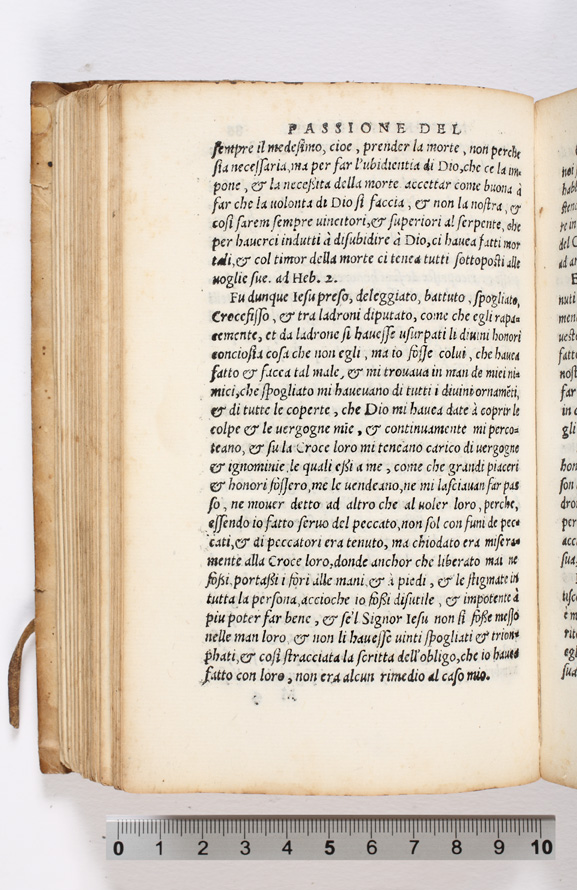 PASSIONE DEL
sempre il medesimo, cioe, prender la morte, non perche
sia necessaria, ma per far l'ubidientia di Dio, che ce la im
pone, & la necesita della morte accettar come buona à
far che la uolonta di Dio si faccia, & non la nostra, &
cosi sarem sempre uincitori, & superiori al serpente, che
per hauerci indutti à disubidire à Dio, ci hauea fatti mor
tali, & col timor della morte ci tenea tutti sottoposti alle
uoglie sue. ad Heb. 2.
Fu dunque Iesu preso, deleggiato, battuto, spogliato,
Crocefisso, & tra ladroni diputato, come che egli rapa=
cemente, et da ladrone si hauesse usurpati li diuini honori
conciosia cosa che non egli, ma io fosse colui, che hauea
fatto & facea tal male, & mi trouaua in man de miei ni=
mici, che spogliato mi haueuano di tutti i diuini ornamẽti,
& di tutte le coperte, che Dio mi hauea date à coprir le
colpe & le uergogne mie, & continuamente mi perco=
teano, & su la Croce loro mi teneano carico di uergogne
& ignominie, le quali essi a me, come che grandi piaceri
& honori fossero, me le uendeano, ne mi lasciauan far pas
so, ne mouer detto ad altro che al uoler loro, perche,
essendo io fatto seruo del peccato, non sol con funi de pec=
cati, & di peccatori era tenuto, ma chiodato era misera=
mente alla Croce loro, donde anchor che liberato mai ne
fossi, portassi i fori alle mani & à piedi, & le stigmate in
tutta la persona, accioche io fossi disutile, & impotente à
piu poter far bene, & se'l Signor Iesu non si fosse messo
nelle man loro & non li hauesse uinti spogliati & trion=
phati, & cosi stracciata la scritta dell'obligo, che io hauea
fatto con loro, non era alcun rimedio al caso mio.
0 1 2 3 4 5 6 7 8 9 10